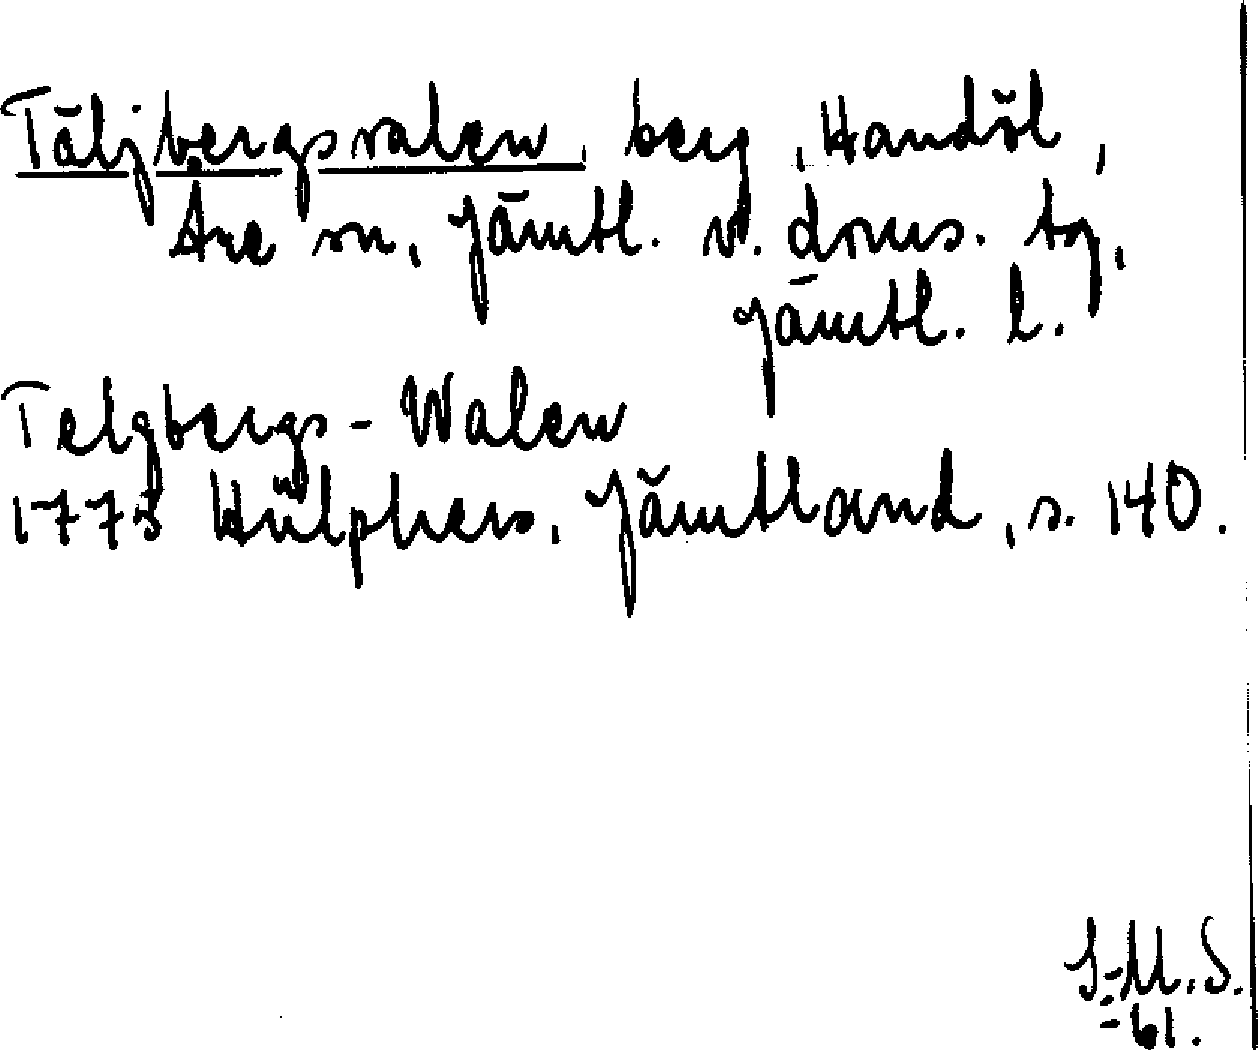 Täljbergsvalen, berg, Handöl,
Åre sn, Jämtl. v. doms. tg,
Jämtl. l.
Telgbergs-Walen
1775 Hülphers, Jämtland, s. 140.
I-M.S.
-61.